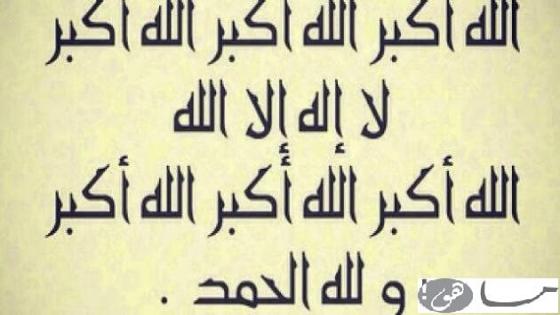 الله أكبر الله أكبر الله أكبر
لا إله إلا الله
الله أكبر الله أكبر الله أكبر
و لله الحمد .
هو